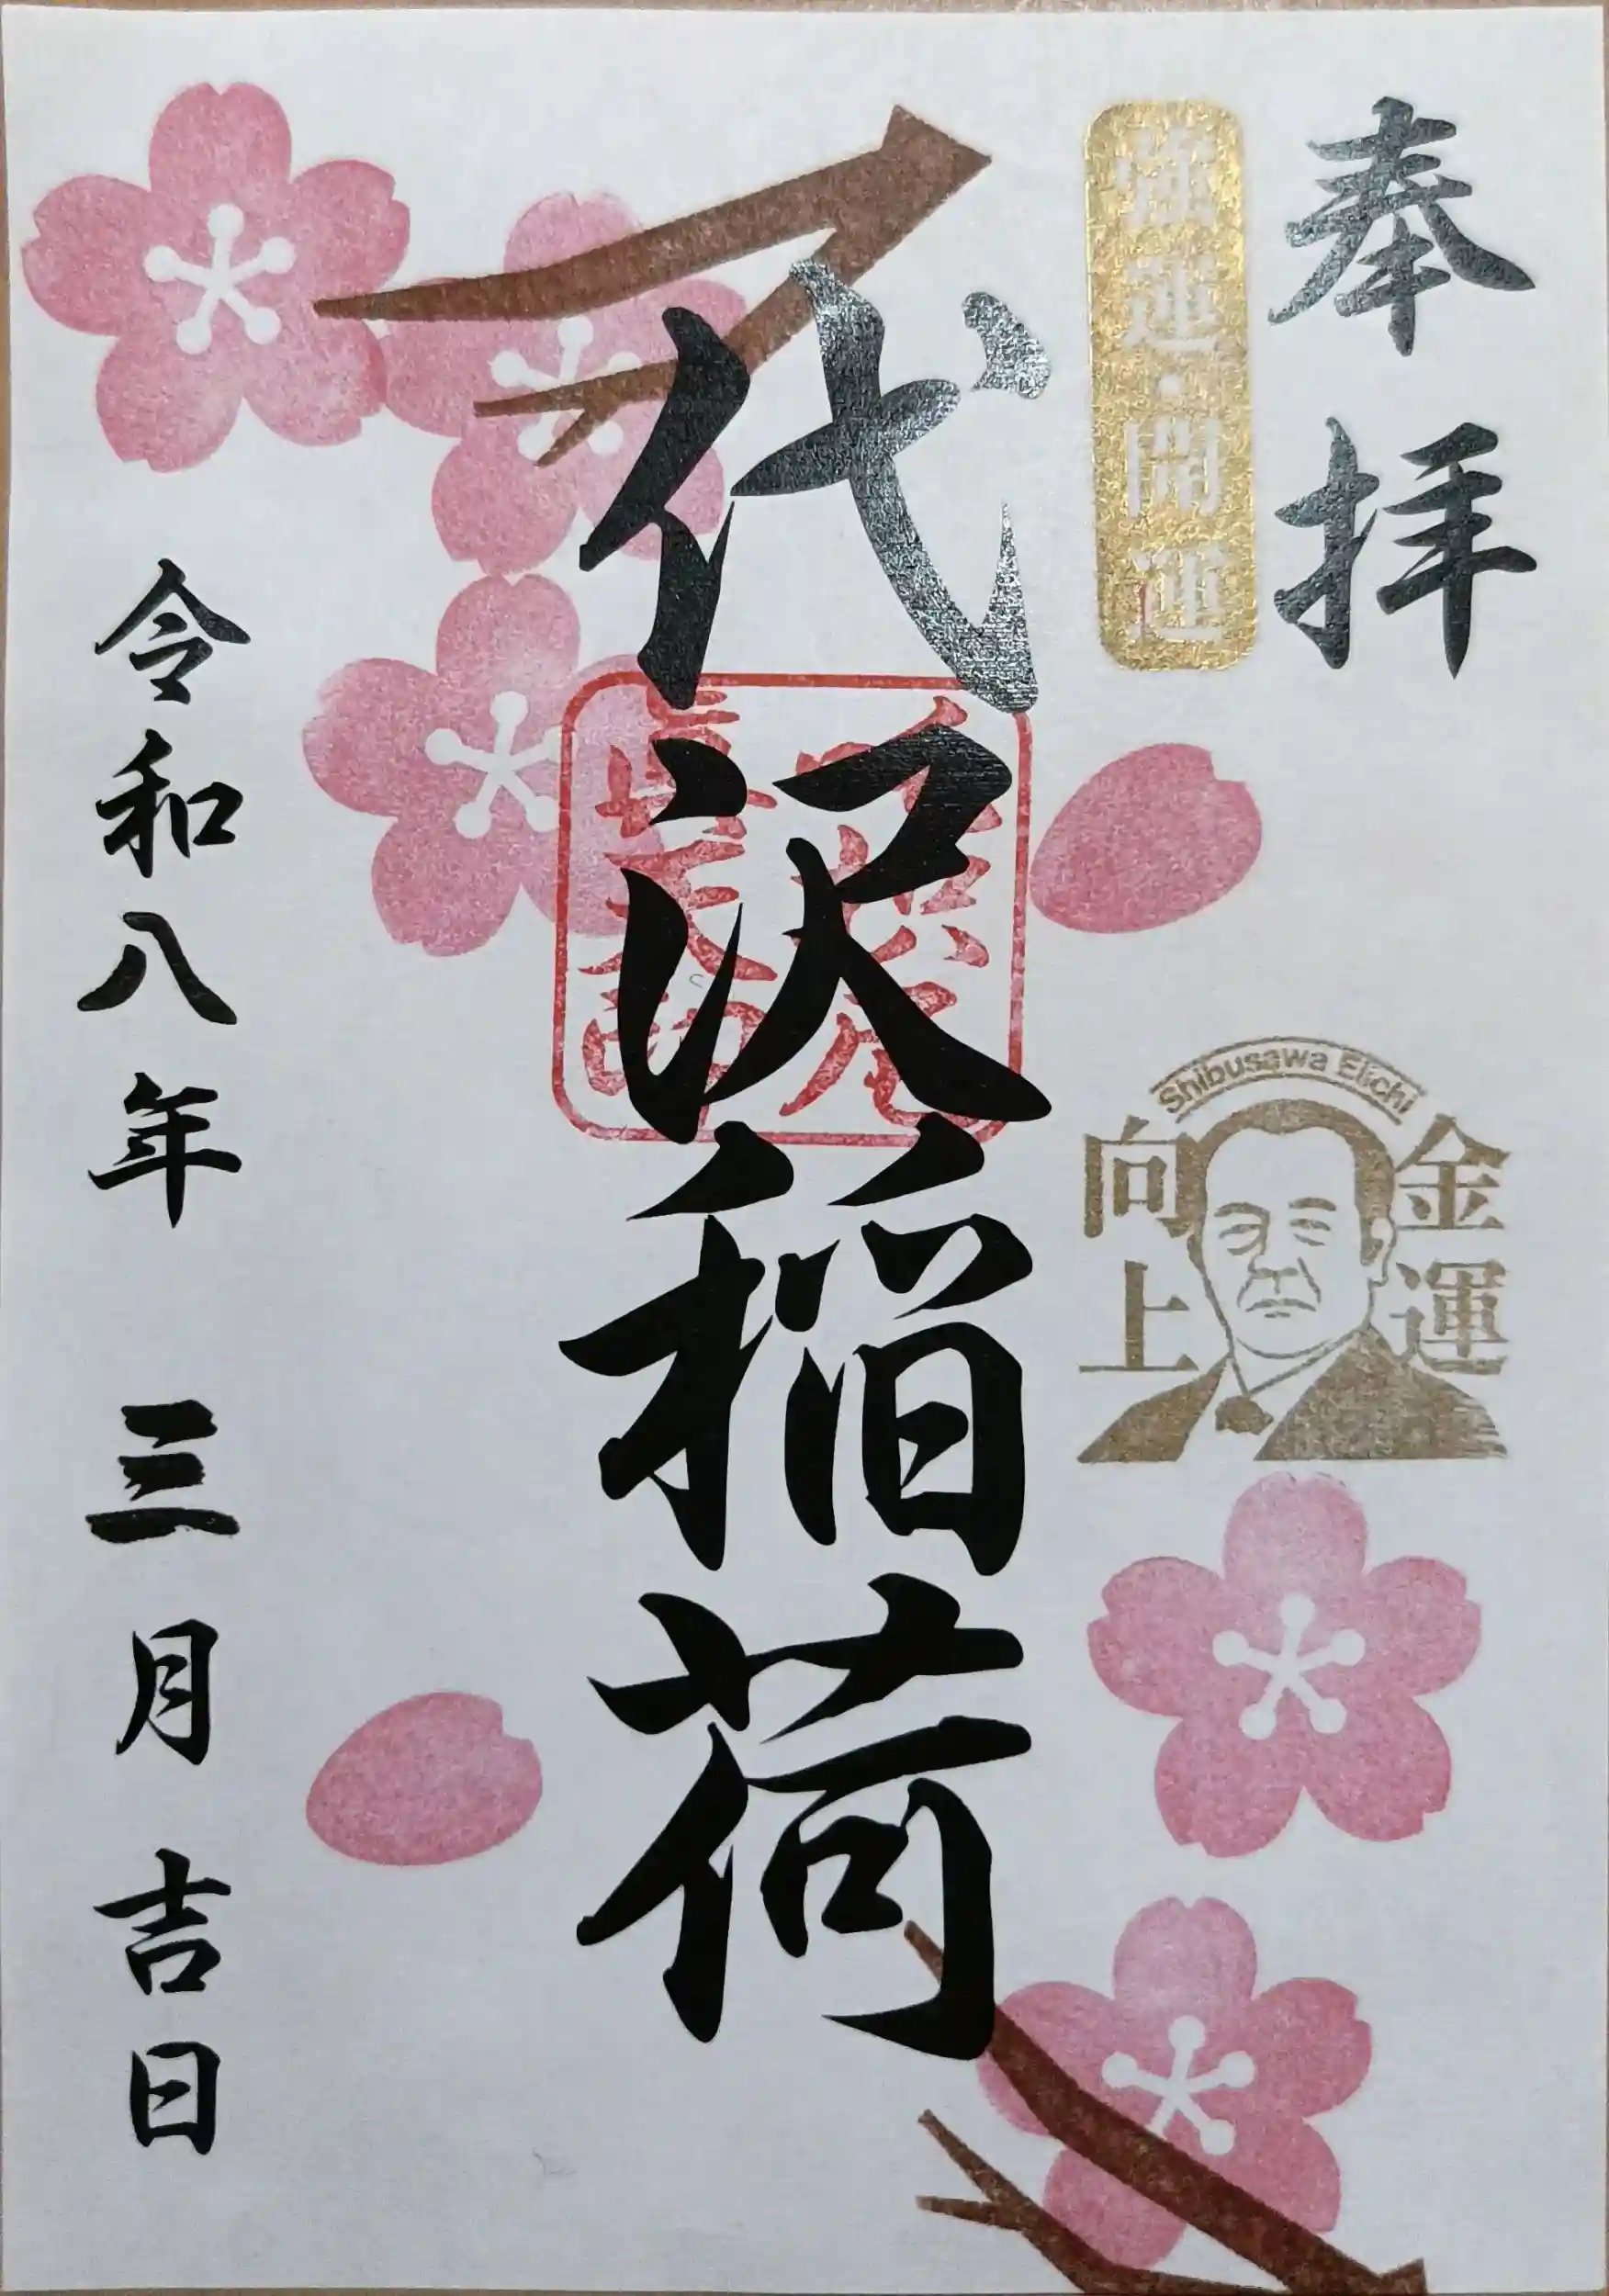 奉拝
強運・開運
Shibusawa Eiichi
金運
向上
代沢稲荷
令和八年 三月 吉日